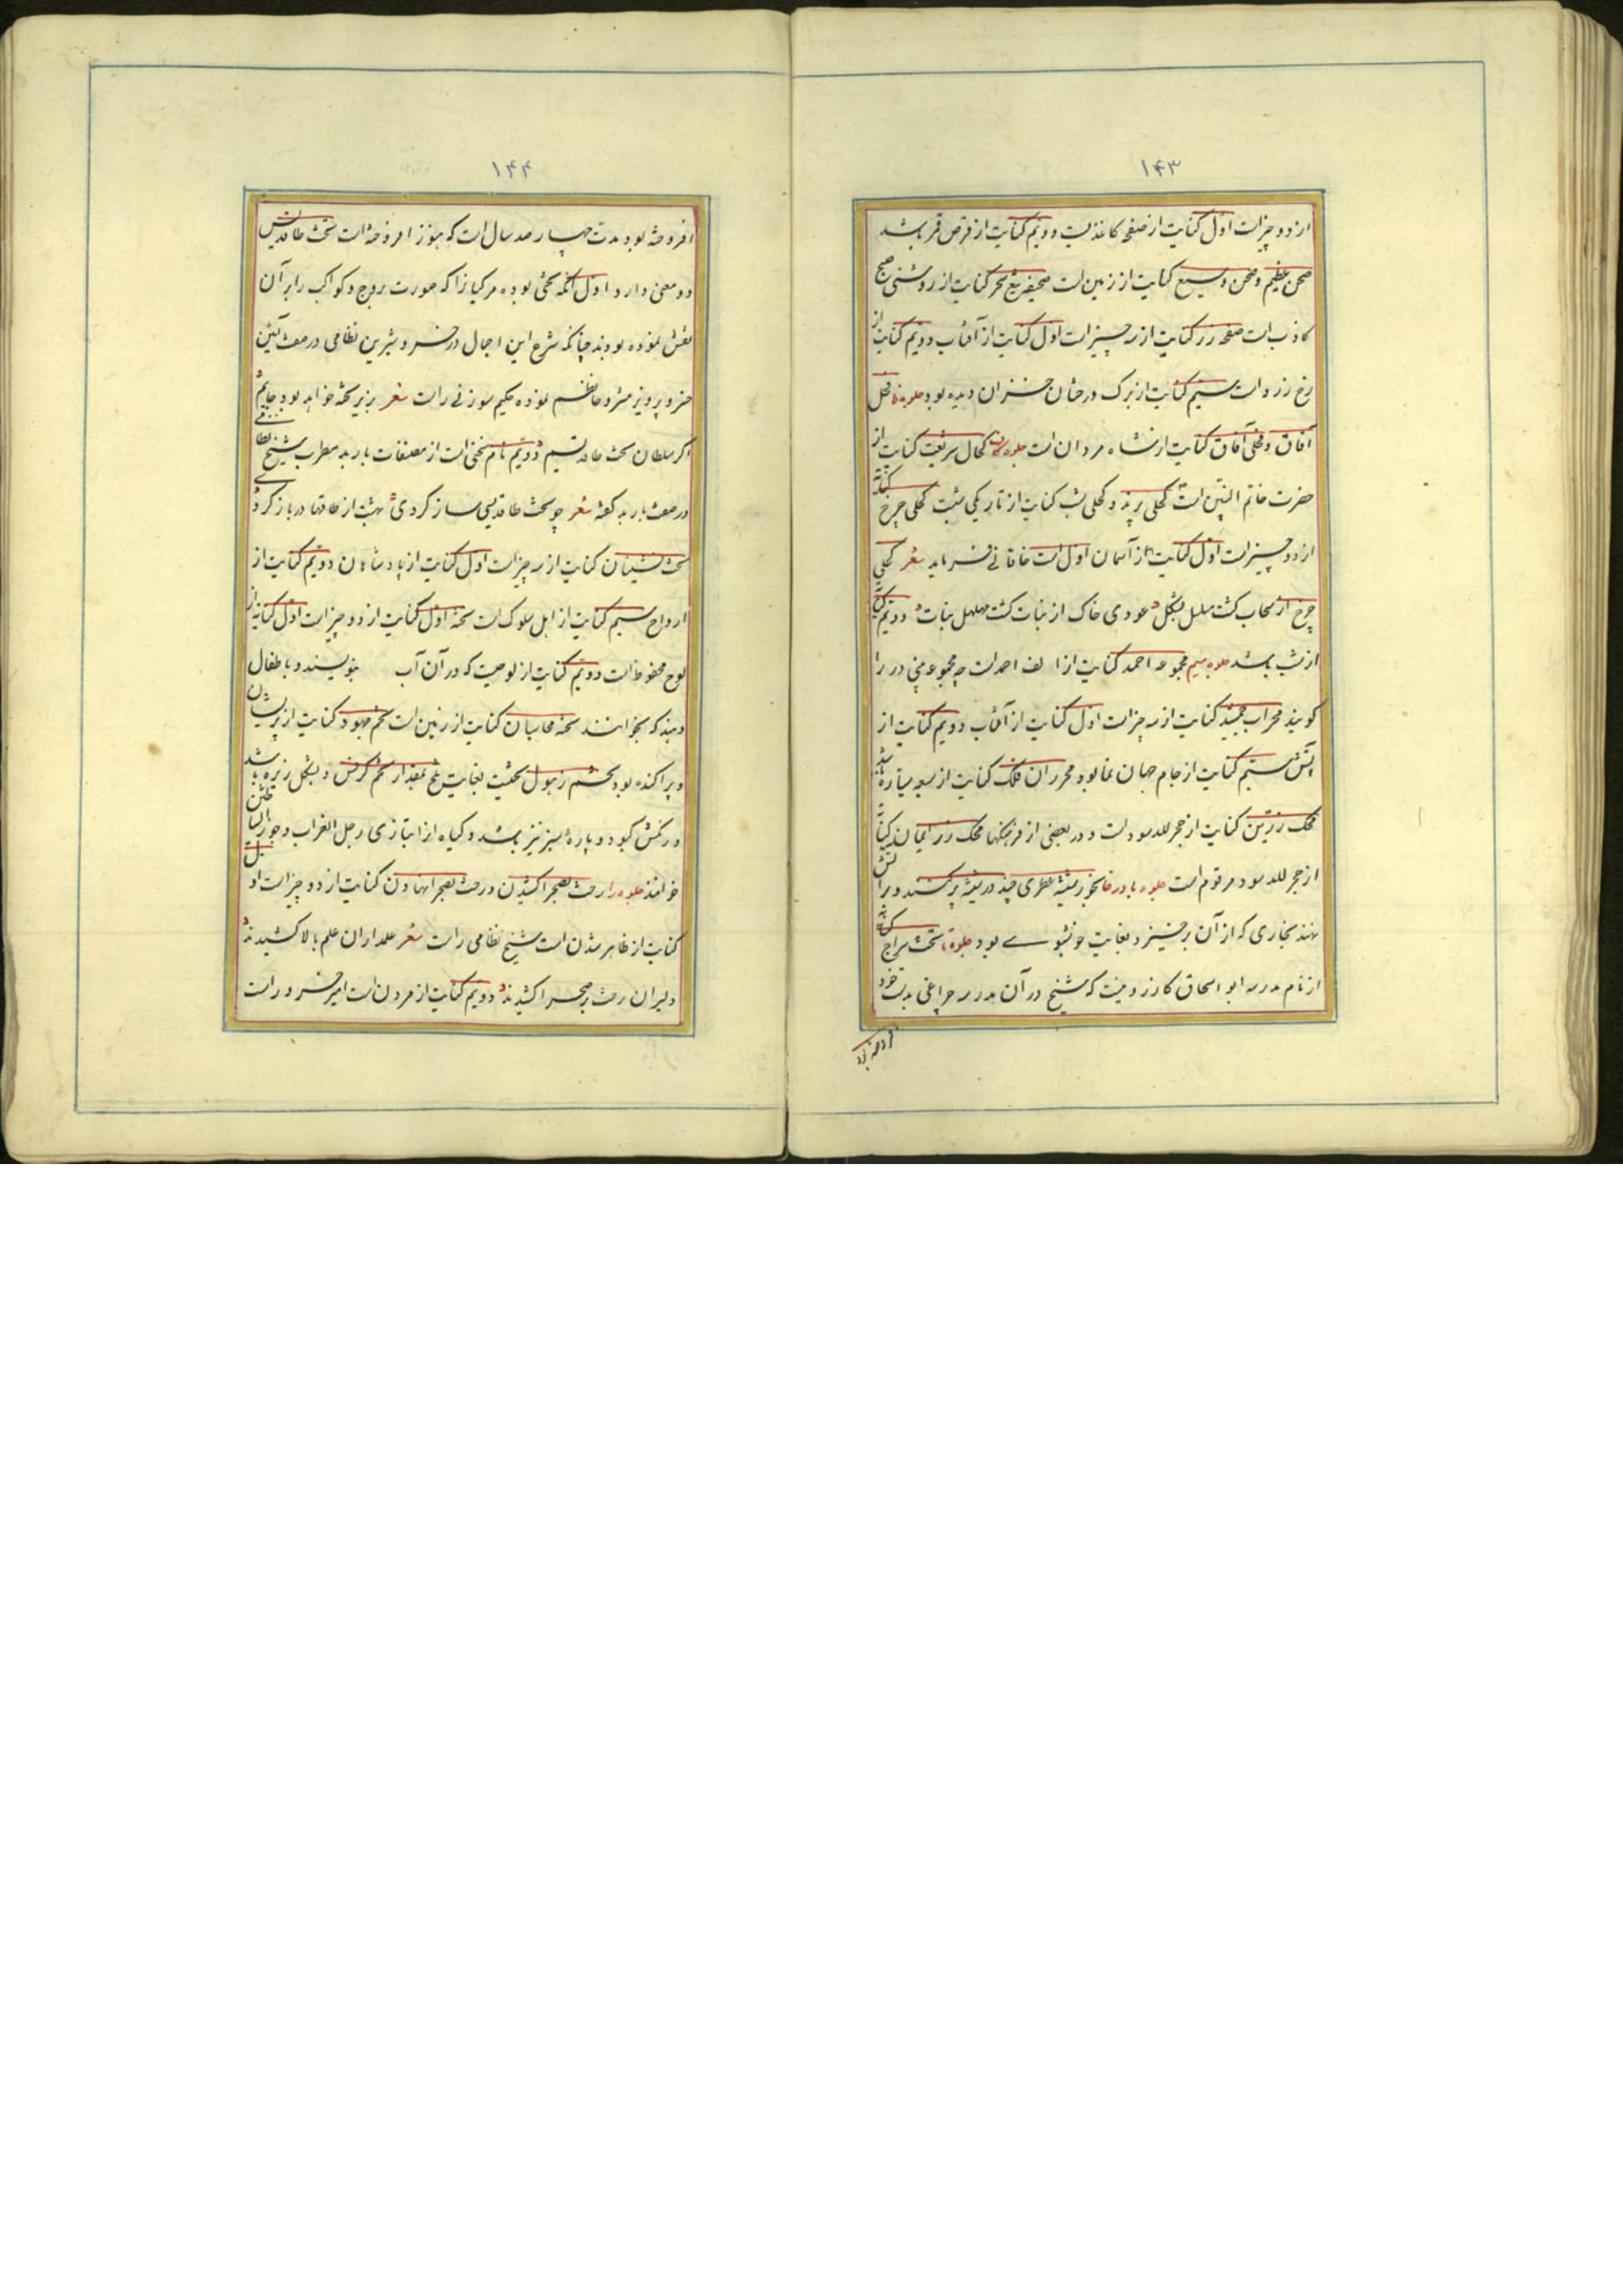 ۱۴۳
از دو چیز است اول کنایت از صفحه کاغذیست دویم کنایت از قرص قمر باشد
صحن عظیم و صحن وسیع کنایت از زمین است صحیفه تیغ سحر کنایت از روشنی صبح
کاذب است صفحه زر کنایت از سه چیز است اول کنایت از آفتاب دویم کنایت از
رخ زرد است سیم کنایت از برک درختان خزان دیده بود جلوه فا فحل
آفاق و فحلی آفاق کنایت از شاه مردان است جلوه کاف کحال شریعت کنایت از
حضرت خاتم النبیین است کحلی پرند و کحلی شب کنایت از تاریکی شبت کحلی چرخ کنایه
از دو چیز است اول کنایت از آسمان اول است خاقانی فرماید شعر کحلی
چرخ از سحاب کشت مسلسل بشکل عودی خاک از نبات کشت مهلهل بنبات دویم کنایت
از شب باشد جلوه میم مجموعه احمد کنایت از الف احمد است چه مجموعه منی در را
کویند محراب جمشید کنایت از سه چیز است اول کنایت از آفتاب دویم کنایت از
آتش سیم کنایت از جام جهان نما بود محرران فلک کنایت از سبعه سیاره باشد
محک زرین کنایت از حجر الاسود است و در بعضی از فرهنکها محک زر ایمان کنایة
از حجر الاسود مرقوم است جلوه با در خا بخور شیشه عطری چند در شیشه پر کنند و بر آتش
نهند بخاری که از آن برخیزد بغایت خوشبوے بود جلوه تا تخت سراج کنایه
از نام مدرسه ابو اسحاق کازرونیست که شیخ در آن مدرسه چراغی بدست خود
افروخته بود
۱۴۴
افروخته بود مدت چهار صد سال است که هنوز افروخته است تخت طاقدیس
دو معنی دارد اول آنکه تختی بوده مر کیانرا که صورت بروج و کواکب را بر آن
نقش نموده بودند چنانکه شرح این اجمال در خسرو و شیرین نظامی در صفت آئین
خسرو پرویز مشروحا نظم نموده حکیم سوزنی راست شعر بزیر تخته خواهد بود جایم
اکر سلطان تخت طاقدیسم دویم نام سخنی است از مصنفات باربد مطرب شیخ نظامی
در صفت باربد کفته شعر چو تخت طاقدیسی ساز کردی بهشت از طاقها در باز کردے
تخت نشینان کنایت از سه چیز است اول کنایت از پادشاهان دویم کنایت از
ارواح سیم کنایت از اهل سلوک است تخته اول کنایت از دو چیز است اول کنایه از
لوح محفوظ است دویم کنایت از لوحیست که در آن آب بنویسند و باطفال
دهند که بخوانند تخته محاسبان کنایت از زمین است تخم جهود کنایت از پریشان
و پراکنده بود تخم زهول تخمیست بغایت تلخ بمقدار تخم کرفس و بشکل زیره باشد
و رنکش کبود و پاره سبز نیز باشد و کیاه او را بتازی رجل الغراب و جوز الشیاطین
خوانند جلوه را رخت بصحرا کشیدن و رخت بصحرا نهادن کنایت از دو چیز است اول
کنایت از ظاهر شدن است شیخ نظامی راست شعر علمداران علم بالا کشیدند
دلیران رخت بر صحرا کشیدند دویم کنایت از مردن است امیر خسرو راست